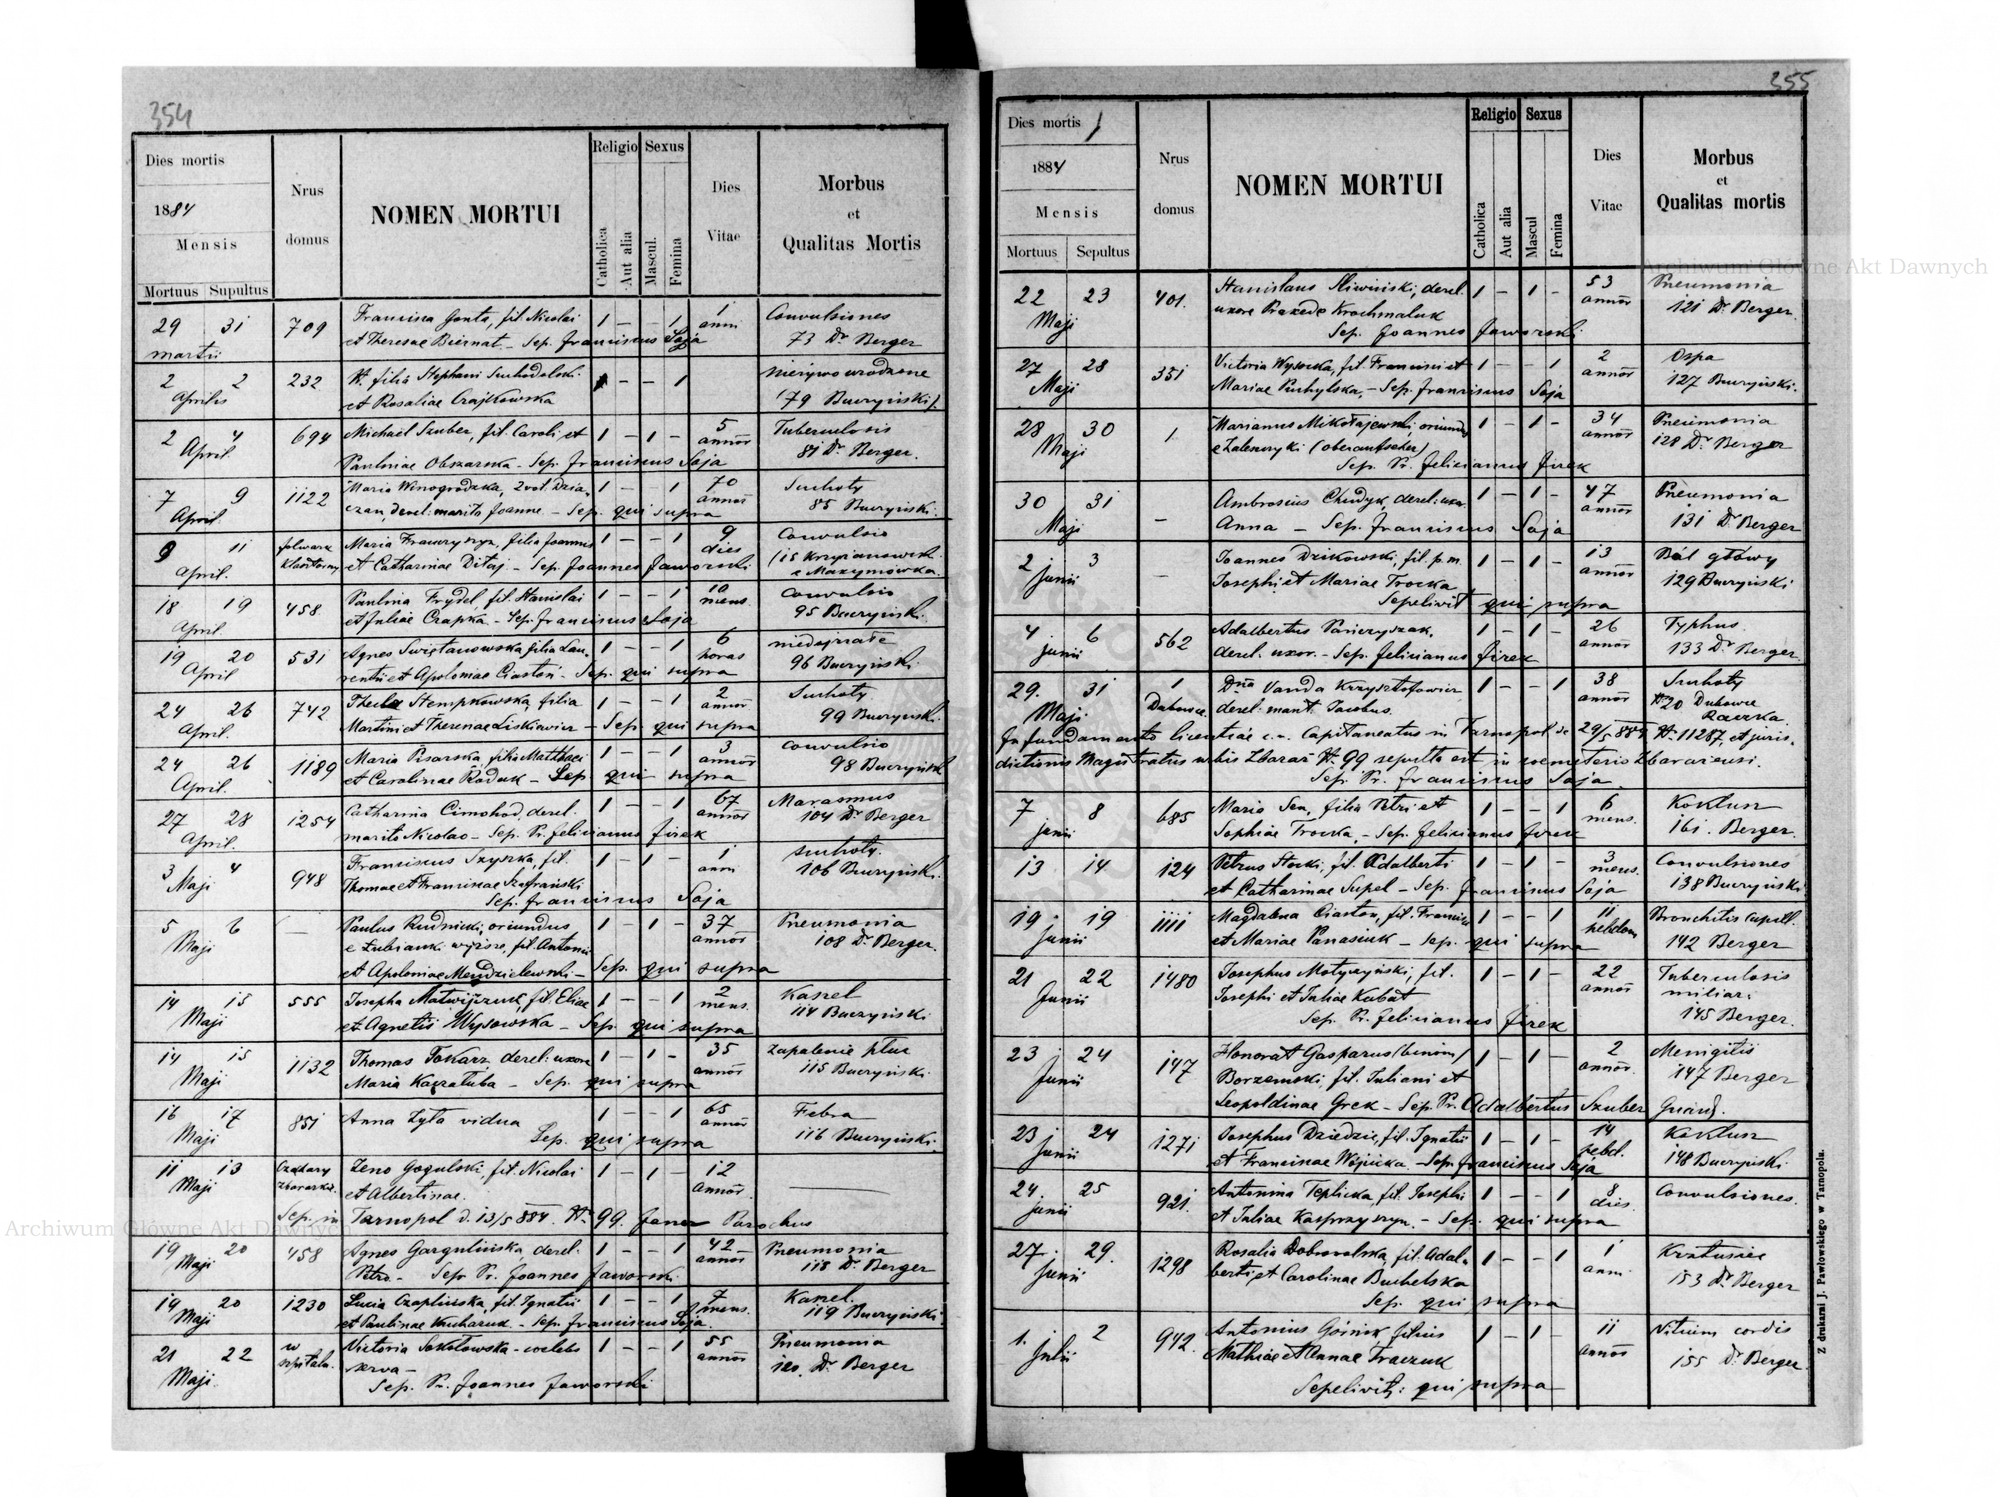 354
Dies mortis
1884
Mensis
Mortuus Supultus
Nrus domus
NOMEN MORTUI
Religio Sexus
Catholica Aut alia Mascul. Femina
Dies Vitae
Morbus et Qualitas Mortis
29 31 709 Francisca Gonta, fil. Nicolai 1 — — 1 1 Convulsiones
martii et Theresae Biernat - Sep. franciscus Soja anni 73 Dr Berger
2 2 232 N. filia Stephani Suchodolski 1 — — 1 nieżywo urodzone
Aprilis et Rosaliae Czajkowska (79 Buczyński).
2 4 694 Michael Szuber, fil. Caroli et 1 — 1 — 5 Tuberculosis
April. Paulinae Obszarska - Sep. franciscus Soja annor 81 Dr Berger.
7 9 1122 Maria Winogrodzka, 2 vot. 1 — — 1 70 Suchoty
April. derel: marito Joanne. - Sep. qui supra annor 85 Buczyński.
9 11 folwark Maria filia Joannis 1 — — 1 9 Convulsio
April. klasztorny et Catharinae - Sep. Joannes Jaworski dies (15 Krzyżanowski
e Maxymówka.
18 19 458 Paulina Frydel, fil. Stanislai 1 — — 1 10 Convulsio
April. et Juliae Czapka - Sep. franciscus Soja mens. 95 Buczyński.
19 20 531 Agnes Swiętanowska filia Lau- 1 — — 1 6 niedojrzałe
April rentii et Apoloniae Ciastoń - Sep. qui supra horas 96 Buczyński.
24 26 742 Thecla Stempkowska, filia 1 — — 1 2 Suchoty
April. Martini et Theresae Liskiewicz - Sep. qui supra annor 99 Buczyński.
24 26 1189 Maria Pisarska, filia Matthaei 1 — — 1 3 Convulsio
April. et Carolinae Raduk - Sep. qui supra annor 98 Buczyński
27 28 1254 Catharina Cimohod, derel. 1 — — 1 67 Marasmus
April. marito Nicolao - Sep. Pr. felicianus firek annor 104 Dr Berger
3 4 948 Franciscus Szyszka, fil. 1 — 1 — 1 Suchoty.
Maji Thomae et Franciscae Szafrański anni 106 Buczyński.
Sep. franciscus Soja
5 6 — Paulus Rudnicki, oriundus 1 — 1 — 37 Pneumonia
Maji e Łubianki wyższe, fil. Antonii annor 108 Dr Berger.
et Apoloniae - Sep. qui supra
14 15 555 Josepha Matwijczuk, fil. Eliae 1 — — 1 2 Kaszel
Maji et Agnetis Wysowska - Sep. qui supra mens. 114 Buczyński
14 15 1132 Thomas Tokarz derel: uxore 1 — 1 — 35 Zapalenie płuc
Maji Maria Kaczałuba - Sep. qui supra annor 115 Buczyński
16 17 851 Anna Zyła vidua 1 — — 1 65 Febra
Maji Sep. qui supra annor 116 Buczyński.
11 13 Czahary Zeno Gogulski, fil. Nicolai 1 — 1 — 12
Maji zbarazkie. et Albertinae. annor.
Sep. in Tarnopol d. 13/5 884. N. 99. Parochus
19 20 458 Agnes Gargulińska, derel. 1 — — 1 42 Pneumonia
Maji Petro - Sep. Pr. Joannes Jaworski annor 118 Dr Berger
19 20 1230 Lucia Czaplińska, fil. Ignatii 1 — — 1 7 Kaszel.
Maji et Paulinae Kucharuk. - Sep. franciscus Soja. mens. 119 Buczyński.
21 22 w Victoria Sokołowska - coelebs 1 — — 1 55 Pneumonia
Maji. szpitalu. serva - annor 120. Dr Berger
Sep. Pr. Joannes Jaworski
355
Dies mortis
1884
Mensis
Mortuus Sepultus
Nrus domus
NOMEN MORTUI
Religio Sexus
Catholica Aut alia Mascul Femina
Dies Vitae
Morbus et Qualitas mortis
22 23 401. Stanislaus Sliwiński, derel. 1 — 1 — 53 Pneumonia
Maji uxore Praxeda Krochmaluk annor 121 Dr Berger.
Sep. Joannes Jaworski
27 28 351 Victoria Wysocka, fil. Francisci et 1 — — 1 2 Ospa
Maji Mariae Puchylska, - Sep. franciscus Soja annor 127 Buczyński.
28 30 1. Marianus Mikołajewski oriundus 1 — 1 — 34 Pneumonia
Maji e Zalesczyki annor 128 Dr Berger
Sep. Pr. felicianus firek
30 31 — Ambrosius Chudyk, derel: uxor. 1 — 1 — 47 Pneumonia
Maji Anna — Sep. franciscus Soja annor 131 Dr Berger
2 3 — Joannes Dzikowski, fil. p. m. 1 — 1 — 13 Ból głowy
junii Josephi et Mariae Trocka annor 129 Buczyński
Sepelivit qui supra
4 6 562 Adalbertus 1 — 1 — 26 Typhus.
junii derel. uxor. - Sep. felicianus firek annor 133 Dr Berger.
29. 31 1 Dna Vanda Krzysztofowicz 1 — — 1 38 Suchoty
Maji Dubowce. derel. marit. Jacobus. annor N 20 Dubowce
Raczka.
In fundamento licentiae c. r. Capitaneatus in Tarnopol de 29/5 884 N. 11287, et juris-
dictionis Magistratus urbis Zbaraż N. 99 sepulta est in coemeterio Zbaraziensi.
Sep. Pr. franciscus Soja
7 8 685 Maria Sen, filia Petri et 1 — — 1 6 Koklusz
junii Sophiae Trocka, - Sep. felicianus firek mens. 161. Berger.
13 14 124 Petrus Stocki, fil. Adalberti 1 — 1 — 3 Convulsiones
et Catharinae Supel - Sep. franciscus Soja mens. 138 Buczyński
19 19 1111 Magdalena Ciastoń, fil. Francisci 1 — — 1 11 Bronchitis capill.
junii et Mariae Panasiuk - Sep. qui supra hebdom 142 Berger
21 22 1480 Josephus Motyczyński, fil. 1 — 1 — 22 Tuberculosis
Junii Josephi et Juliae Kubat annor miliar.
Sep. Pr. felicianus firek 145 Berger.
23 24 147 Honorat Gasparus (binom) 1 — 1 — 2 Meningitis
Junii Borzemski, fil. Juliani et annor. 147 Berger
Leopoldinae Grek - Sep. Pr. Adalbertus Szuber Guard.
23 24 1271 Josephus Dziedzic, fil. Ignatii 1 — 1 — 14 Koklusz
junii et Francinae Wójcicka - Sep. franciscus Soja hebd. 148 Buczyński
24 25 921. Antonina Teplicka, fil. Josephi 1 — — 1 8 Convulsiones.
junii et Juliae Kasprzyszyn. - Sep. qui supra dies.
27 29. 1298 Rosalia Dobrowolska, fil. Adal- 1 — — 1 1
junii berti et Carolinae Buchelska anni 153 Dr Berger
Sep. qui supra
1. 2 942. Antonius Górnik filius 1 — 1 — 11 Vitium cordis
julii Mathiae et Annae Traczuk annor 155 Dr Berger.
Sepelivit: qui supra
Z drukarni J. Pawłowskiego w Tarnopolu.
Archiwum Główne Akt Dawnych
Archiwum Główne Akt Dawnych